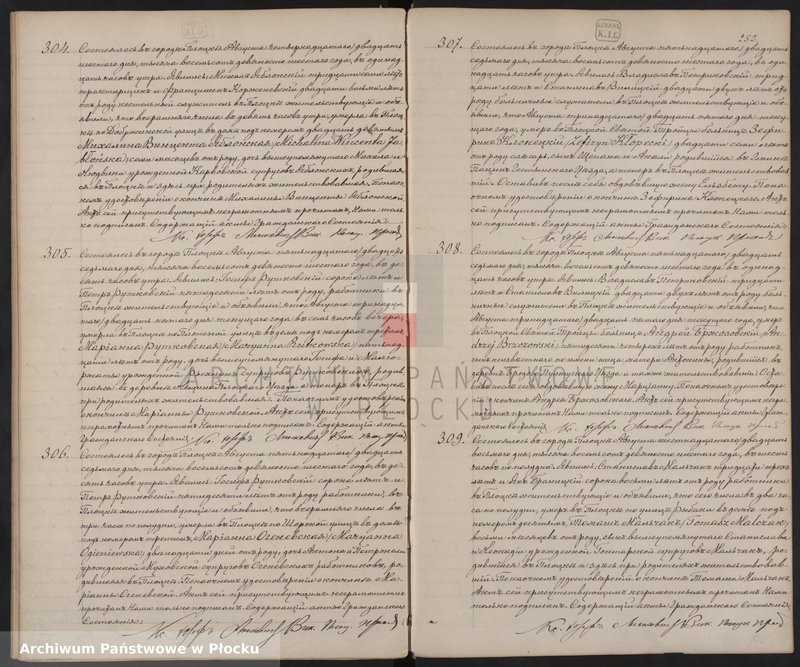 304. Состоялось въ городѣ Плоцкѣ Августа четырнадцатаго/двадцать
шестого дня, тысяча восемьсотъ девяносто шестого года, въ одинад-
цать часовъ утра. Явились Михалъ Яблонскій тридцати
трактирщикъ и Францишекъ двадцати восьми лѣтъ
отъ роду костельный служитель въ Плоцкѣ жительствующіе и объ-
явили, что вчерашняго числа въ девять часовъ утра, умерла въ Плоц-
кѣ по Добржинской улицѣ въ домѣ подъ номеромъ двадцать девятымъ
Михалина Винцента Яблонская/Michalina Wincenta Ja-
błońska/ семи мѣсяцевъ отъ роду, дочь вышеупомянутаго Михала и
урожденной Карвовской супруговъ Яблонскихъ, родивша-
яся въ Плоцкѣ и здѣсь при родителяхъ жительствовавшая. По наоч-
номъ удостовѣреніи о кончинѣ Михалины Винценты Яблонской,
Актъ сей присутствующимъ неграмотнымъ прочитанъ, Нами толь-
ко подписанъ. Содержащій акты Гражданскаго Состоянія:
305. Состоялось въ городѣ Плоцкѣ Августа пятнадцатаго/двадцать
седьмого дня, тысяча восемьсотъ девяносто шестого года, въ де-
сять часовъ утра. Явились Іосифъ Рутковскій сорока лѣтъ и
Петръ Рутковскій пятидесяти лѣтъ отъ роду, работники въ
Плоцкѣ жительствующіе и объявили, что Августа тринадца-
таго/двадцать пятаго дня текущаго года въ семь часовъ вечера,
умерла въ Плоцкѣ улицѣ въ домѣ подъ номеромъ
Маріанна Рутковская/Maryanna Rutkowska/ пятнад-
цати лѣтъ отъ роду, дочь вышеупомянутаго Іосифа и Малгор-
жаты урожденной супруговъ Рутковскихъ, родив-
шаяся въ деревнѣ Плоцкаго Уѣзда, а теперь въ Плоцкѣ
при родителяхъ жительствовавшая. По наочномъ удостовѣреніи
о кончинѣ Маріанны Рутковской, Актъ сей присутствующимъ
неграмотнымъ прочитанъ Нами только подписанъ. Содержащій акты
Гражданскаго Состоянія:
306. Состоялось въ городѣ Плоцкѣ Августа пятнадцатаго/двадцать
седьмого дня, тысяча восемьсотъ девяносто шестого года, въ де-
сять часовъ утра. Явились Іосифъ Рутковскій сорока лѣтъ и
Петръ Рутковскій пятидесяти лѣтъ отъ роду работники, въ
Плоцкѣ жительствующіе и объявили, что вчерашняго числа въ
три часа по полудни, умерла въ Плоцкѣ по Широкой улицѣ въ домѣ
подъ номеромъ третьимъ, Маріанна Огеневская/Maryanna
Ogieniewska/ двѣнадцати дней отъ роду, дочь Антона и Петронели
урожденной супруговъ Огеневскихъ работниковъ, ро-
дившаяся въ Плоцкѣ. По наочномъ удостовѣреніи о кончинѣ Ма-
ріанны Огеневской, Актъ сей присутствующимъ неграмотнымъ
прочитанъ Нами только подписанъ. Содержащій акты Гражданскаго
Состоянія:
252
307. Состоялось въ городѣ Плоцкѣ Августа пятнадцатаго/двадцать
седьмого дня, тысяча восемьсотъ девяносто шестого года, въ оди-
надцать часовъ утра. Явились Владиславъ Петриковскій трид-
цати лѣтъ и Станиславъ двадцати двухъ лѣтъ отъ
роду больничные служители въ Плоцкѣ жительствующіе и объ-
явили, что Августа тринадцатаго/двадцать пятаго дня теку-
щаго года, умеръ въ Плоцкой Святой Троицы больницѣ Зефи-
ринъ двадцати семи лѣтъ
отъ роду слесарь, сынъ Щепана и Анны родившійся въ
Уѣзда, а теперь въ Плоцкѣ жительствовав-
шій. Оставивъ послѣ себя овдовѣвшую жену Елизавету. По на-
очномъ удостовѣреніи о кончинѣ Зефирина Актъ
сей присутствующимъ неграмотнымъ прочитанъ Нами толь-
ко подписанъ. Содержащій акты Гражданскаго Состоянія:
308. Состоялось въ городѣ Плоцкѣ Августа пятнадцатаго/двадцать
седьмого дня, тысяча восемьсотъ девяносто шестого года въ одинад-
цать часовъ утра. Явились Владиславъ Петриковскій тридцати
лѣтъ и Станиславъ двадцати двухъ лѣтъ отъ роду боль-
ничные служители въ Плоцкѣ жительствующіе и объявили, что
Августа тринадцатаго/двадцать пятаго дня текущаго года, умеръ
въ Плоцкой Святой Троицы больницѣ Андрей Бржозовскій/An-
drzej Brzozowski/ пятидесяти четырехъ лѣтъ отъ роду работникъ,
сынъ неизвѣстнаго по имени отца, матери Антонины, родившійся въ
Уѣзда и тамже жительствовавшій. Оста-
вивъ послѣ себя овдовѣвшую жену Маріанну. По наочномъ удостовѣре-
ніи о кончинѣ Андрея Бржозовскаго, Актъ сей присутствующимъ негра-
мотнымъ прочитанъ Нами только подписанъ. Содержащій акты Граж-
данскаго Состоянія:
309. Состоялось въ городѣ Плоцкѣ Августа шестнадцатаго/двадцать
восьмого дня, тысяча восемьсотъ девяносто шестого года, въ шесть
часовъ по полудни. Явились Станиславъ Мальчакъ тридцати трехъ
лѣтъ и Янъ сорока восьми лѣтъ отъ роду работники
въ Плоцкѣ жительствующіе и объявили, что сего числа въ два ча-
са по полудни, умеръ въ Плоцкѣ по улицѣ Рыбаки въ домѣ подъ
номеромъ десятымъ, Томашъ Мальчакъ/Tomasz Malczak/
восьми мѣсяцевъ отъ роду, сынъ вышеупомянутаго Станислава
и урожденной супруговъ Мальчакъ, ро-
дившійся въ Плоцкѣ и здѣсь при родителяхъ жительствовав-
шій. По наочномъ удостовѣреніи о кончинѣ Томаша Мальчака,
Актъ сей присутствующимъ неграмотнымъ прочитанъ Нами
только подписанъ. Содержащій акты Гражданскаго Состоянія:
ARCHIWUM PAŃSTWOWE
W PŁOCKU
Archiwum Państwowe w Płocku